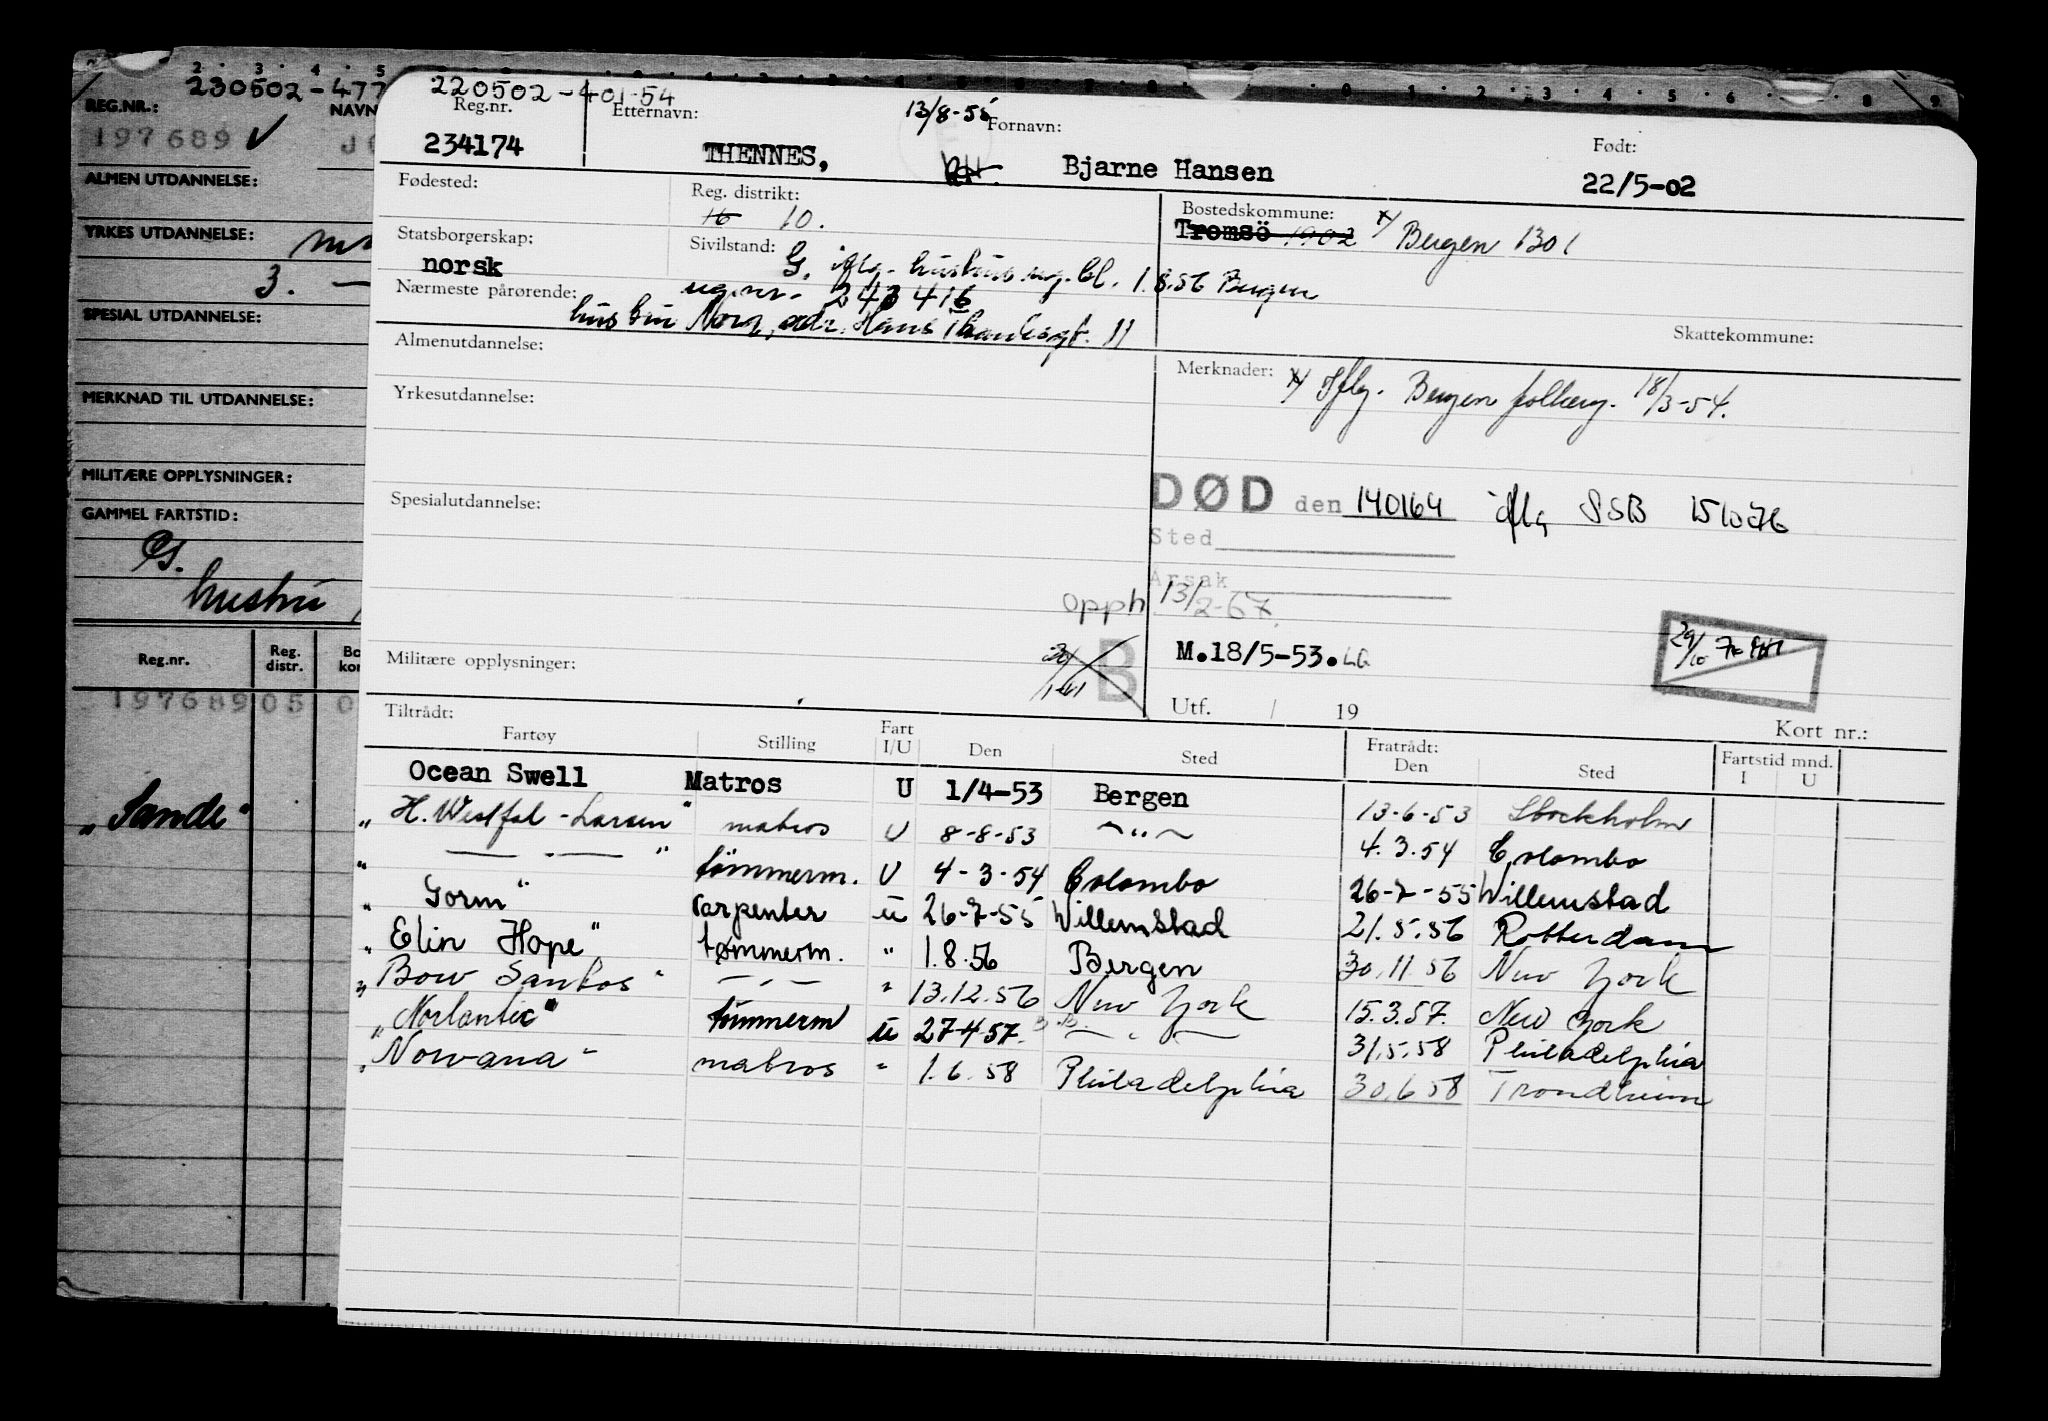 230502-477
REG.NR.: NAVN
197689 V
ALMEN UTDANNELSE:
YRKES UTDANNELSE:
3. —
SPESIAL UTDANNELSE:
MERKNAD TIL UTDANNELSE:
MILITÆRE OPPLYSNINGER:
GAMMEL FARTSTID:
G.
hustru
Reg.nr. Reg. distr.
197689 05 0
"Sande"
220502-401-54
Reg.nr. Etternavn: 13/8-55 Fornavn: Født:
234174 THENNES, Bjarne Hansen 22/5-02
Fødested: Reg. distrikt: Bostedskommune:
16 10. Tromsö 1902 x/ Bergen 1301
Statsborgerskap: Sivilstand:
norsk G. iflg. hustrus reg.bl. 1.8.56 Bergen
Nærmeste pårørende: reg.nr. 243416
hustru Nora, adr. Hans 11
Skattekommune:
Almenutdannelse: Merknader: x/ Iflg. Bergen folkereg. 18/3-54.
Yrkesutdannelse:
Spesialutdannelse: DØD den 140164 iflg SSB 151076
Sted
Årsak
opph 13/2-67.
Militære opplysninger: B M.18/5-53. LG
Utf. / 19 Kort nr.:
Tiltrådt: Fratrådt: Fartstid mnd.
Fartøy Stilling Fart I/U Den Sted Den Sted I U
Ocean Swell Matros U 1/4-53 Bergen 13-6-53 Stockholm
"H. Westfal-Larsen" matros U 8-8-53 —"— 4.3.54 Colombo
" — . — " tömmerm. U 4-3-54 Colombo 26-7-55 Willemstad
"Gorm" carpenter u 26-7-55 Willemstad 21.5.56 Rotterdam
"Elin Hope" tømmerm. " 1.8.56 Bergen 30.11.56 New York
"Bow Santos" — . — " 13.12.56 New York 15.3.57. New York
"Norlantic" tömmerm u 27-4-57. — . — 31.5.58 Philadelphia
"Norvana" matros " 1.6.58 Philadelphia 30.6.58 Trondheim